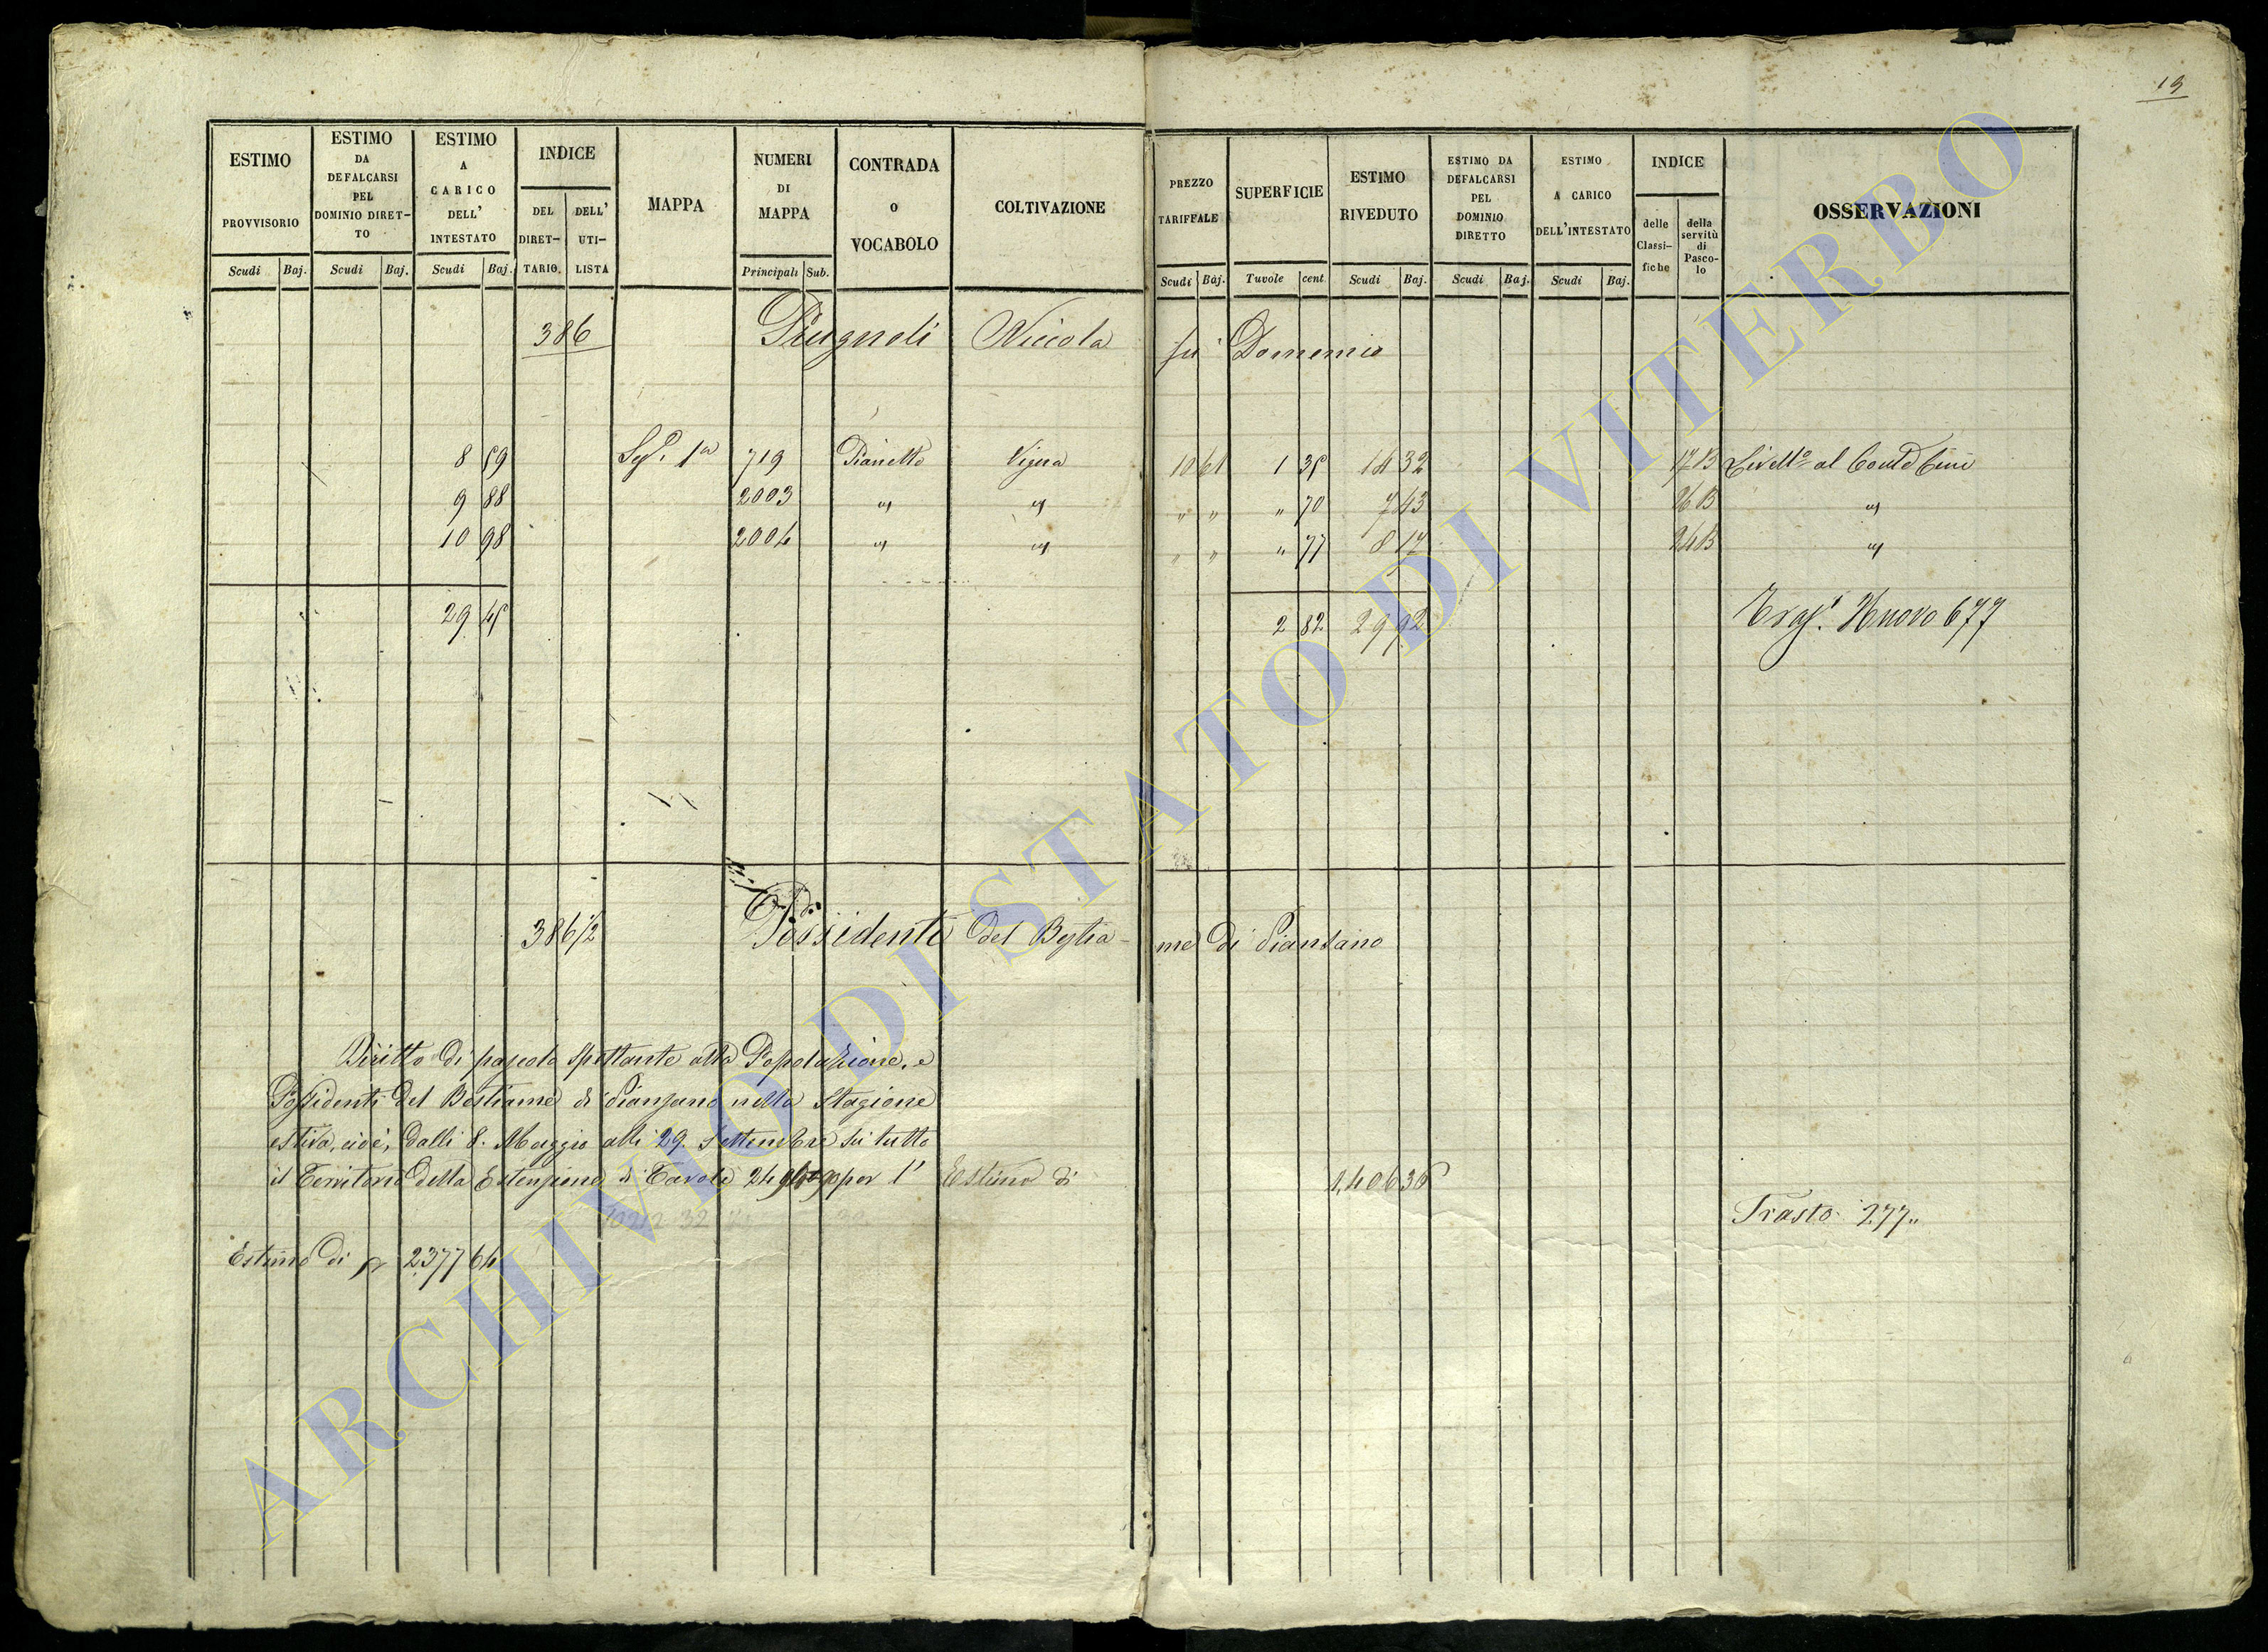 19
ESTIMO PROVVISORIO
ESTIMO DA DEFALCARSI PEL DOMINIO DIRET-TO
ESTIMO A CARICO DELL' INTESTATO
INDICE
DEL DIRET-TARIO.
DELL' UTI-LISTA
MAPPA
NUMERI DI MAPPA
CONTRADA O VOCABOLO
COLTIVAZIONE
PREZZO TARIFFALE
SUPERFICIE
ESTIMO RIVEDUTO
ESTIMO DA DEFALCARSI PEL DOMINIO DIRETTO
ESTIMO A CARICO DELL'INTESTATO
INDICE
delle Classi-fiche
della servitù di Pasco-lo
OSSERVAZIONI
Scudi Baj. Scudi Baj. Scudi Baj. Principali Sub. Scudi Baj. Tavole cent. Scudi Baj. Scudi Baj. Scudi Baj.
386 Prugnoli Niccola fu Domenico
8 59 Sez. 1a 719 Pianetto Vigna 10 61 1 35 14 32 17 B Livello al
9 88 2003 " " " " " 70 7 43 26 B "
10 98 2004 " " " " " 77 8 17 24 B "
29 45 2 82 29 92 Nuovo 677
386/2 Possidenti del Bestia-me di Piansano
Diritto di pascolo spettante alla Popolazione, e
Possidenti del Bestiame di Piansano nella Stagione
estiva, cioè, dalli 8. Maggio alli 29. Settembre su tutto
il Territorio della Estensione di Tavole per l' Estimo di 1,406 36
Trasto. 277"
Estimo di 2377 64
ARCHIVIO DI STATO DI VITERBO